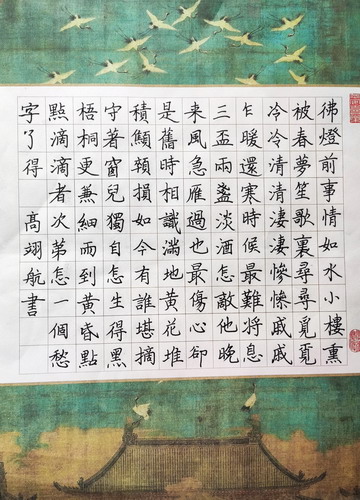 彿燈前事情如水小樓熏
被春夢笙歌裏尋尋覓覓
冷冷清清淒淒慘慘戚戚
乍暖還寒時候最難將息
三盃兩盞淡酒怎敵他晚
来風急雁過也最傷心卻
是舊時相識滿地黃花堆
積顦顇損如今有誰堪摘
守著窗兒獨自怎生得黑
梧桐更兼細而到黃昏點
點滴滴者次第怎一個愁
字了得 高翊航書